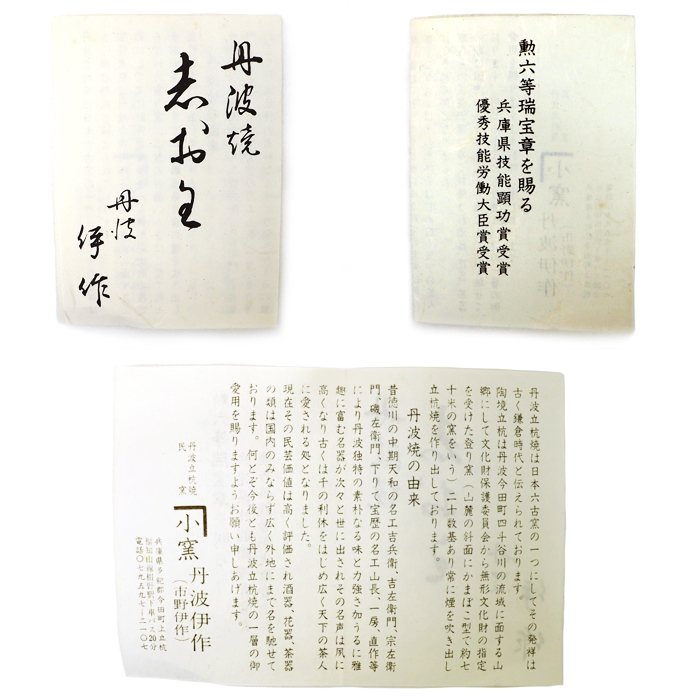 丹波焼
志おり
丹波
伊作
勲六等瑞宝章を賜る
兵庫県技能顕功賞受賞
優秀技能労働大臣賞受賞
丹波立杭焼は日本六古窯の一つにしてその発祥は
古く鎌倉時代と伝えられております。
陶境立杭は丹波今田町四斗谷川の流域に面する山
郷にして文化財保護委員会から無形文化財の指定
を受けた登り窯（山麓の斜面にかまぼこ型で約七
十米の窯をいう）二十数基あり常に煙を吹き出し
立杭焼を作り出しております。
丹波焼の由来
昔徳川の中期天和の名工吉兵衛、吉左衛門、宗左衛
門、磯左衛門、下りて宝歴の名工山長、一房、直作等
により丹波独特の素朴なる味と力強さ加うるに雅
趣に富む名器が次々と世に出されその名声は夙に
高くなり古くは千の利休をはじめ広く天下の茶人
に愛される処となりました。
現在その民芸価値は高く評価され酒器、花器、茶器
の類は国内のみならず広く外地にまで名を馳せて
おります。何とぞ今後とも丹波立杭焼の一層の御
愛用を賜りますようお願い申しあげます。
丹波立杭焼
民窯
小窯 丹波伊作
（市野伊作）
兵庫県多紀郡今田町上立杭
福知山線相野駅下車バス20分
電話〇七九五九七ー二一〇七